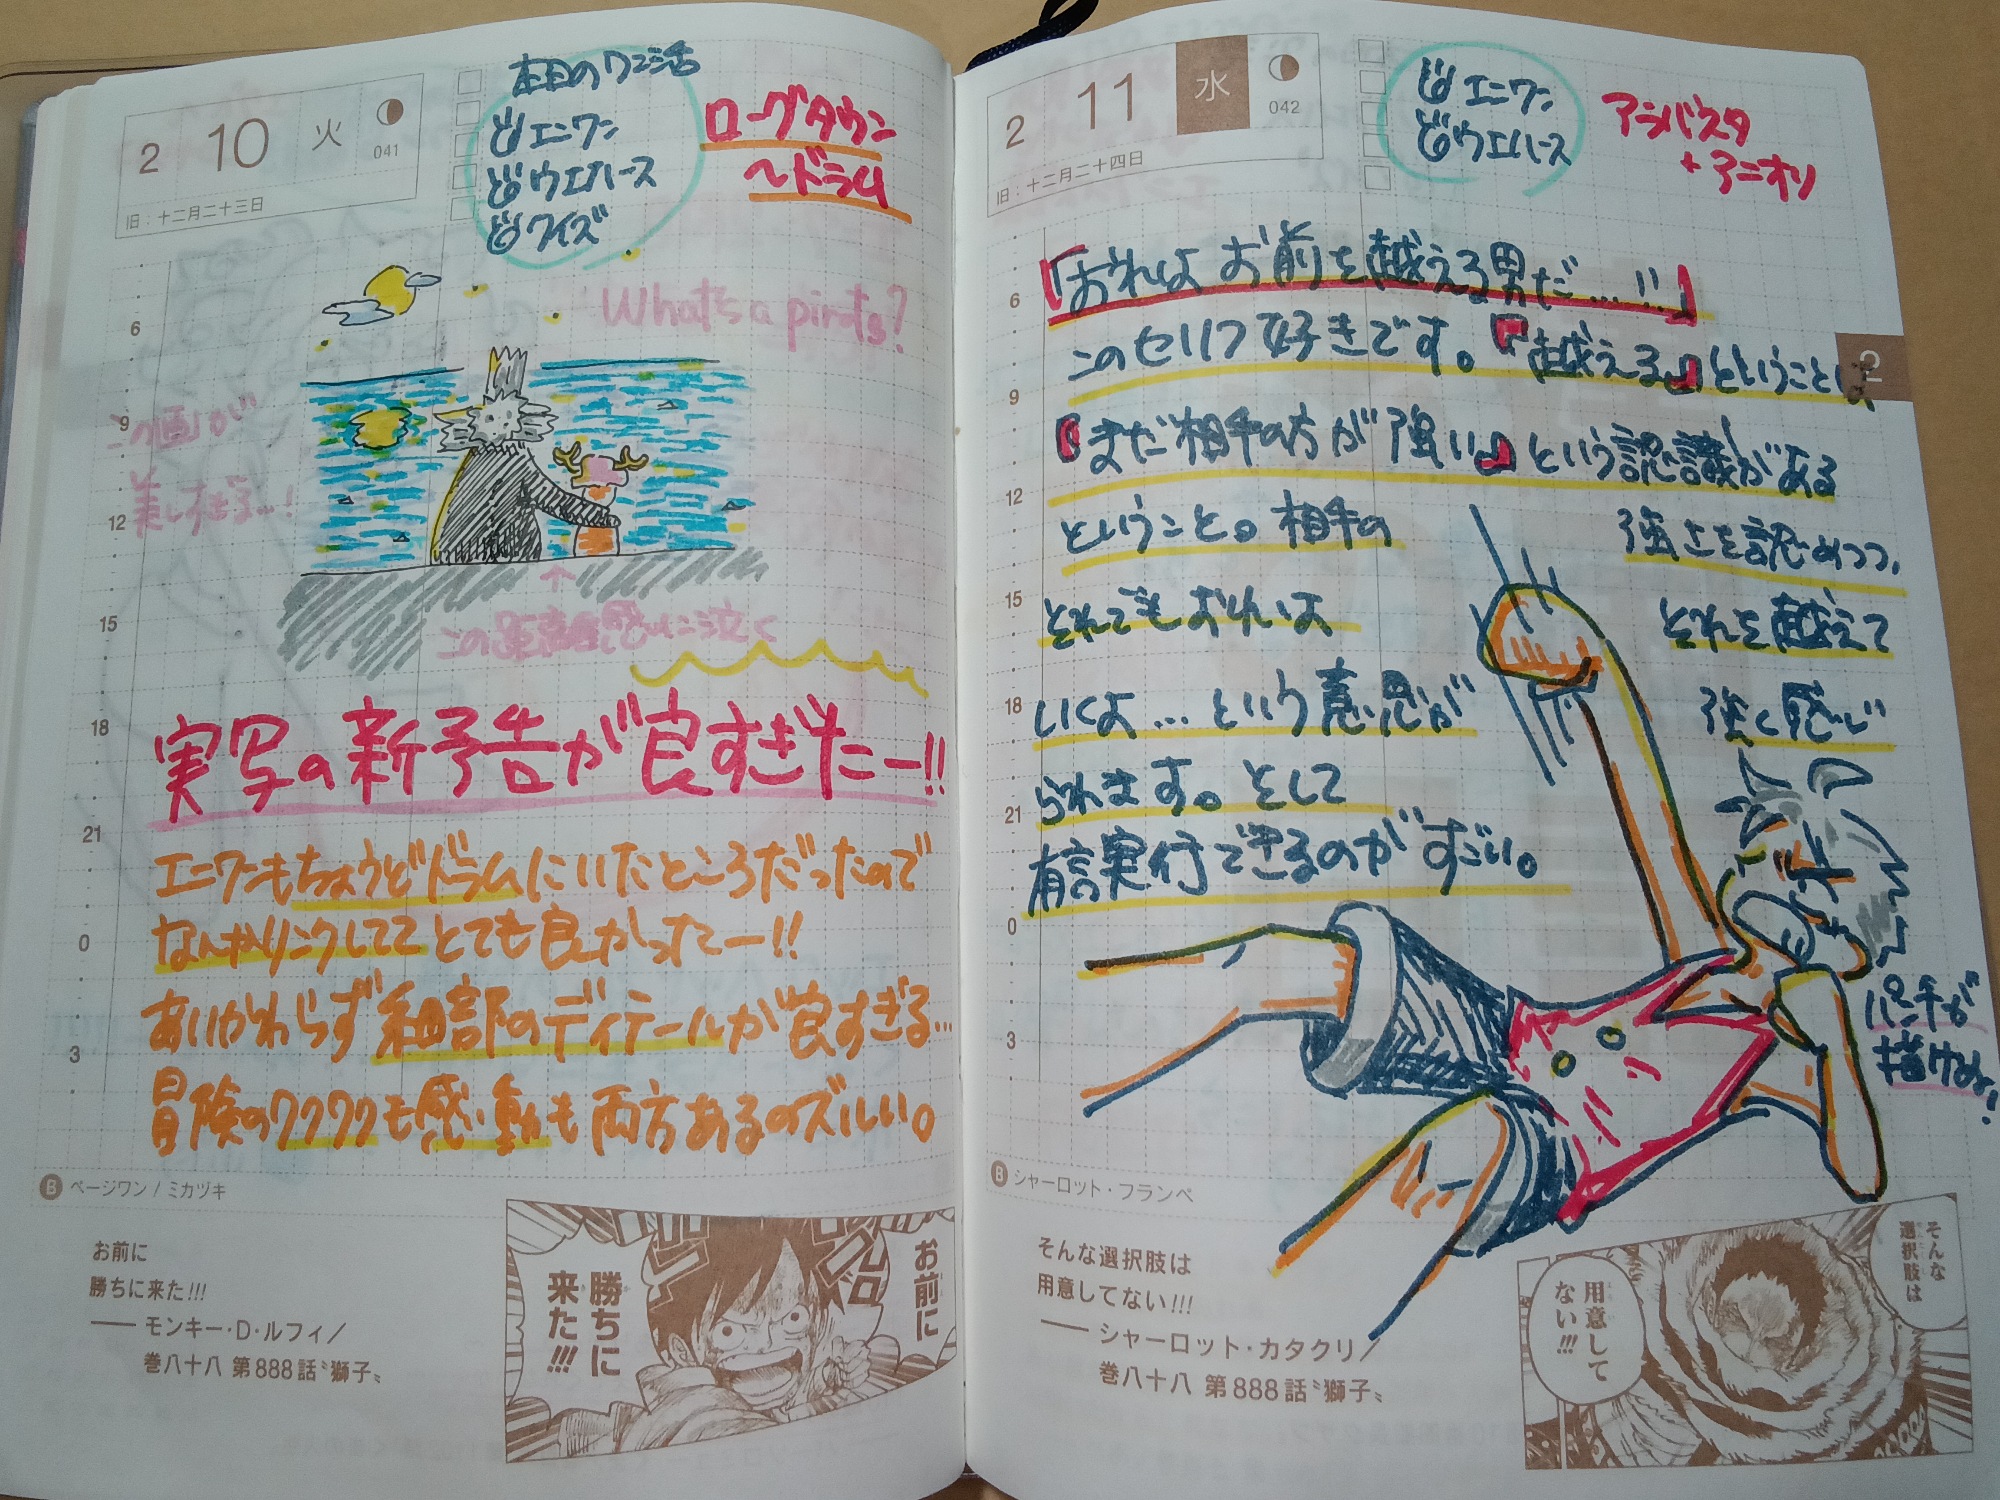 2 10 火
041
旧:十二月二十三日
本日のワンピ活
エニワン
ウエハース
クイズ
ローグタウン
〜ドラム
What's a pirate?
この画が
美しすぎる…!
↑
この距離感に泣く
実写の新予告が良すぎたー!!
エニワンもちょうどドラムにいたところだったので
なんかリンクしてて とても良かったー!!
あいかわらず 細部のディテールが良すぎる…
冒険のワクワクも感動も両方あるのズルい。
6
9
12
15
18
21
0
3
B ページワン / ミカヅキ
お前に
勝ちに来た!!!
── モンキー・D・ルフィ/
巻八十八 第888話〝獅子〟
お前に
勝ちに
来た!!!
2 11 水
042
旧:十二月二十四日
エニワン
ウエハース
アラバスタ
+アニオリ
2
『おれはお前を越える男だ…!!』
このセリフ好きです。『越える』ということは
『まだ相手の方が強い』という認識がある
ということ。相手の 強さを認めつつ、
それでもおれは それを越えて
いくよ…という意思が 強く感じ
られます。そして
有言実行できるのがすごい。
パンチが
描けない!
6
9
12
15
18
21
0
3
B シャーロット・フランペ
そんな選択肢は
用意してない!!!
── シャーロット・カタクリ/
巻八十八 第888話〝獅子〟
そんな
選択肢は
用意して
ない!!!